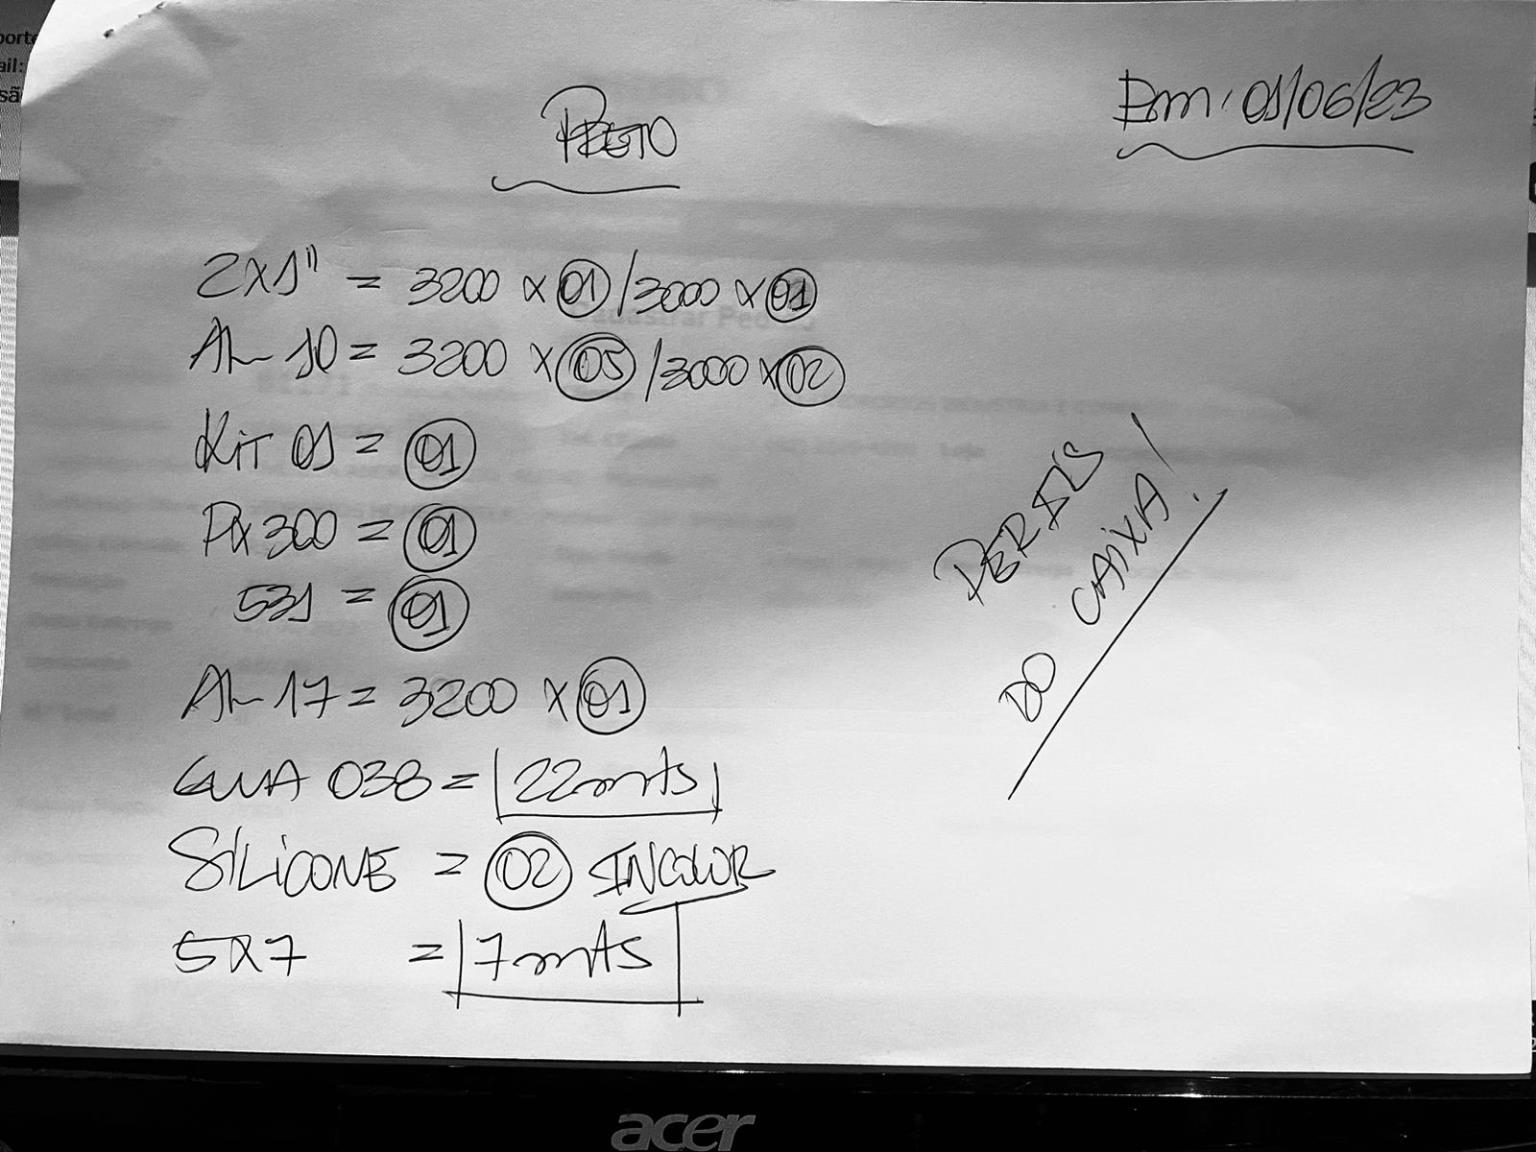 PRETO
Em: 01/06/23
2x1" = 3200 x 01 / 3000 x 01
AL 10 = 3200 x 05 / 3000 x 02
Kit 01 = 01
Px 300 = 01
531 = 01
AL 17 = 3200 x 01
GUIA 038 = 22mts
SiLiCONE = 02 INCOLOR
5x7 = 7mts
PERFIS
DO CAIXA!
acer